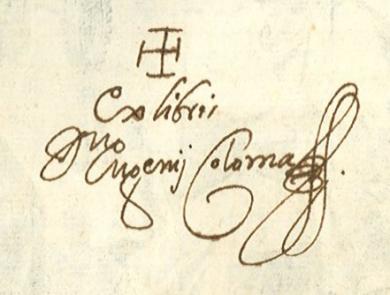 Ex libris
Eugenij Coloma